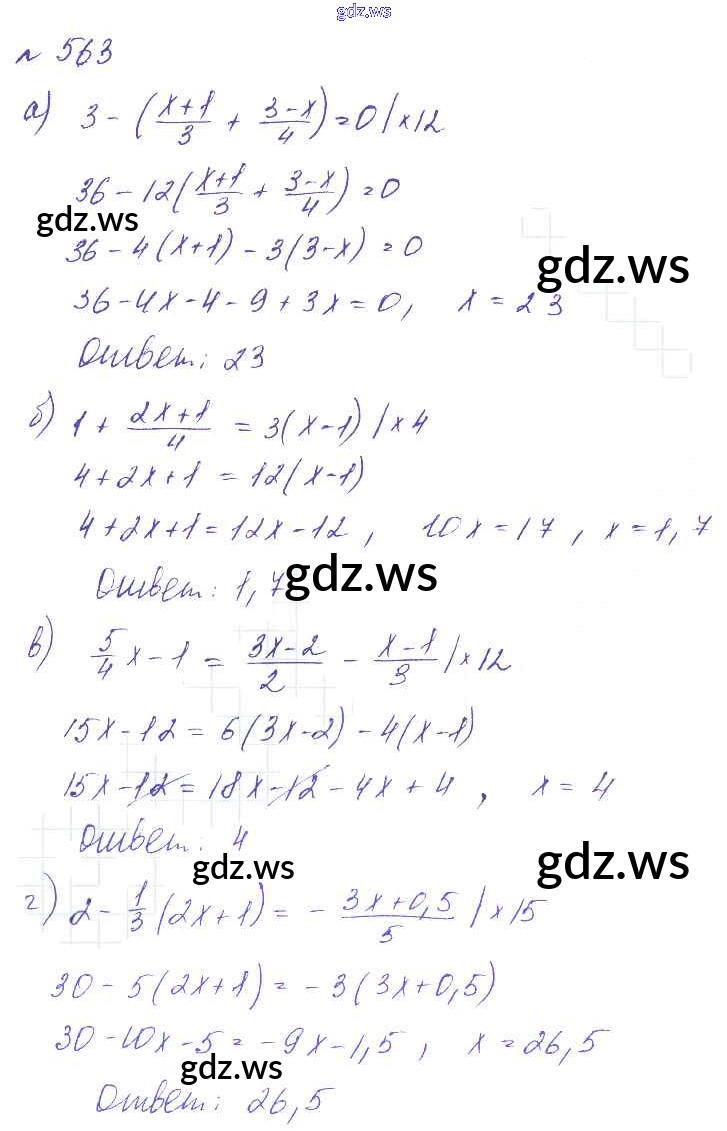 gdz.ws
№ 563
а) 3 - (x+1/3 + 3-x/4) = 0 | ×12
36 - 12(x+1/3 + 3-x/4) = 0
gdz.ws
36 - 4(x+1) - 3(3-x) = 0
gdz.ws
36 - 4x - 4 - 9 + 3x = 0, x = 23
Ответ: 23
б) 1 + 2x+1/4 = 3(x-1) | ×4
4 + 2x + 1 = 12(x-1)
4 + 2x + 1 = 12x - 12, 10x = 17, x = 1,7
Ответ: 1,7
gdz.ws
в) 5/4 x - 1 = 3x-2/2 - x-1/3 | ×12
15x - 12 = 6(3x-2) - 4(x-1)
15x - 12 = 18x - 12 - 4x + 4, x = 4
Ответ: 4
gdz.ws
gdz.ws
г) 2 - 1/3 (2x+1) = - 3x+0,5/5 | ×15
30 - 5(2x+1) = -3(3x+0,5)
30 - 10x - 5 = -9x - 1,5, x = 26,5
gdz.ws
gdz.ws
Ответ: 26,5